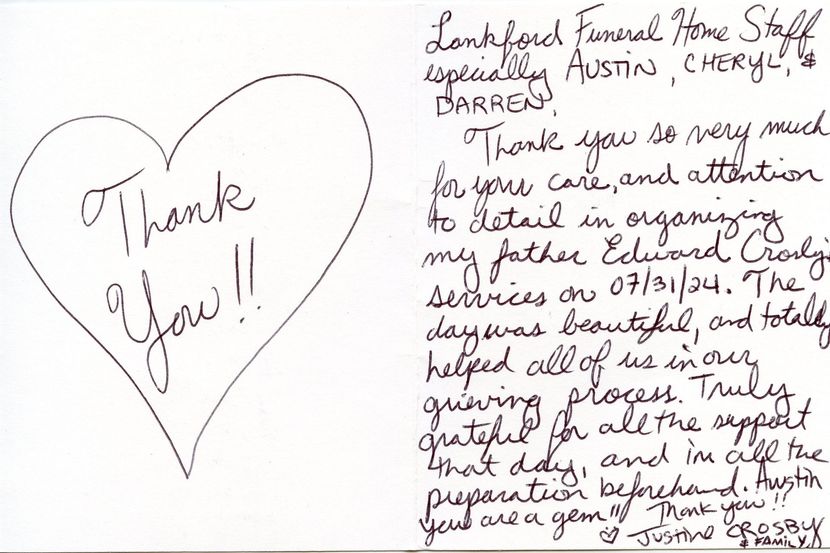 Thank
You!!
Lankford Funeral Home Staff
especially AUSTIN, CHERYL, &
DARREN,
Thank you so very much
for your care, and attention
to detail in organizing
my father Edward Crosby's
services on 07/31/24. The
day was beautiful, and totally
helped all of us in our
grieving process. Truly
grateful for all the support
that day, and in all the
preparation beforehand. Austin
you are a gem!! Thank you!!
Justine CROSBY
& FAMILY